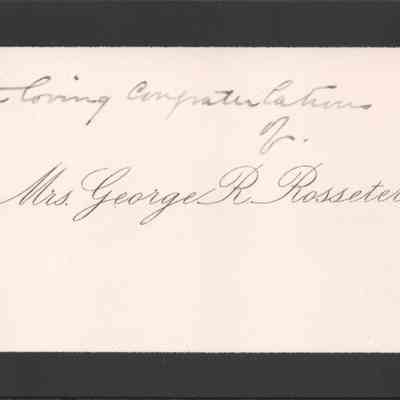 loving Congratulations
of.
Mrs. George R. Rosseter